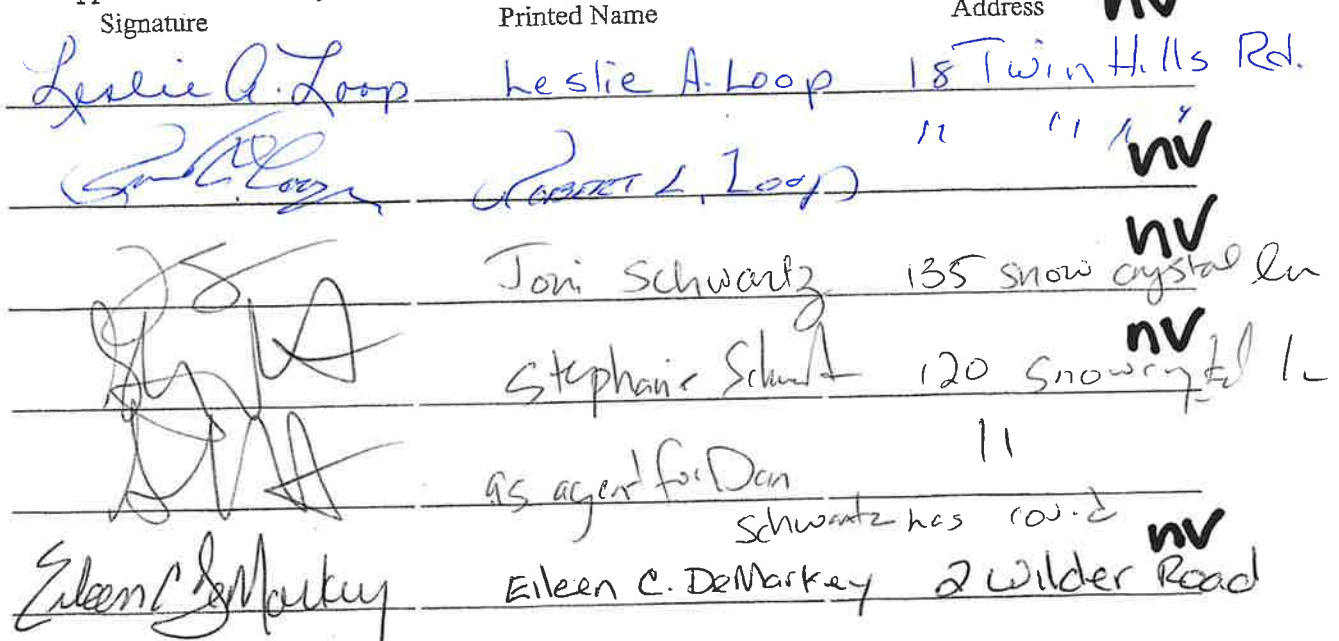 Signature Printed Name Address nv
Leslie A. Loop Leslie A. Loop 18 Twin Hills Rd.
" " " " nv
Robert L. Loop
nv
JS Joni Schwartz 135 snow crystal ln
nv
Stephanie 120 Snowcrystal ln
"
as agent for Dan
Schwartz has covid
nv
Eileen C DeMarkey Eileen C. DeMarkey 2 Wilder Road